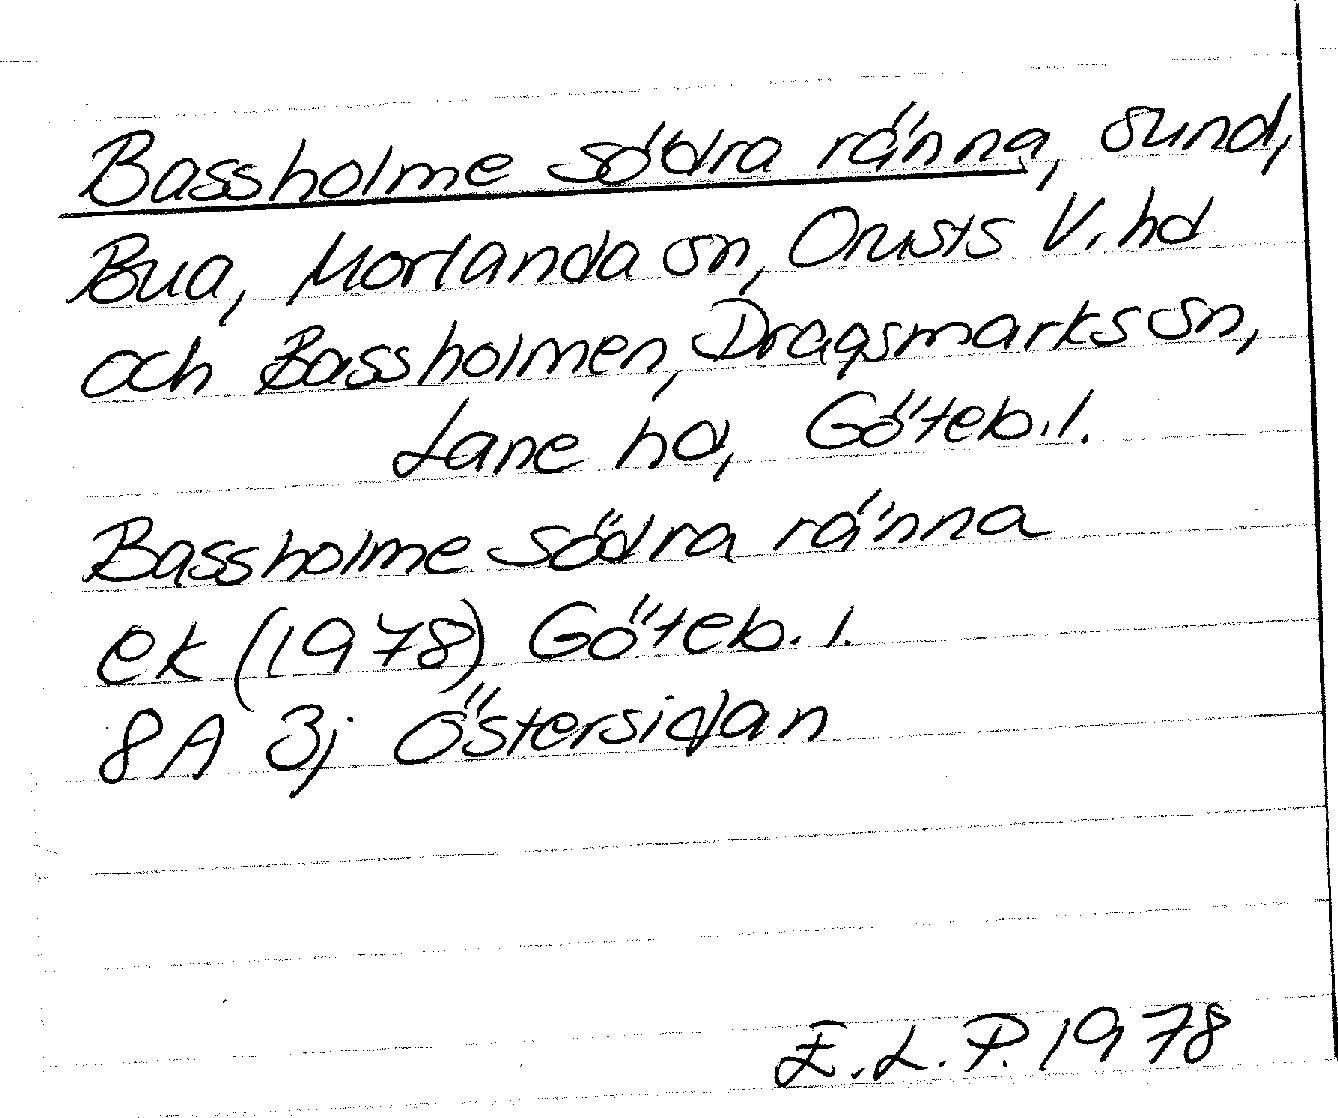 Bassholme södra ränna, sund,
Bua, Morlanda sn, Orusts V. hd
och Bassholmen, Dragsmarks sn,
Lane hd, Göteb. l.
Bassholme södra ränna
ek (1978) Göteb. l.
8A 3j Östersidan
E. L. P. 1978